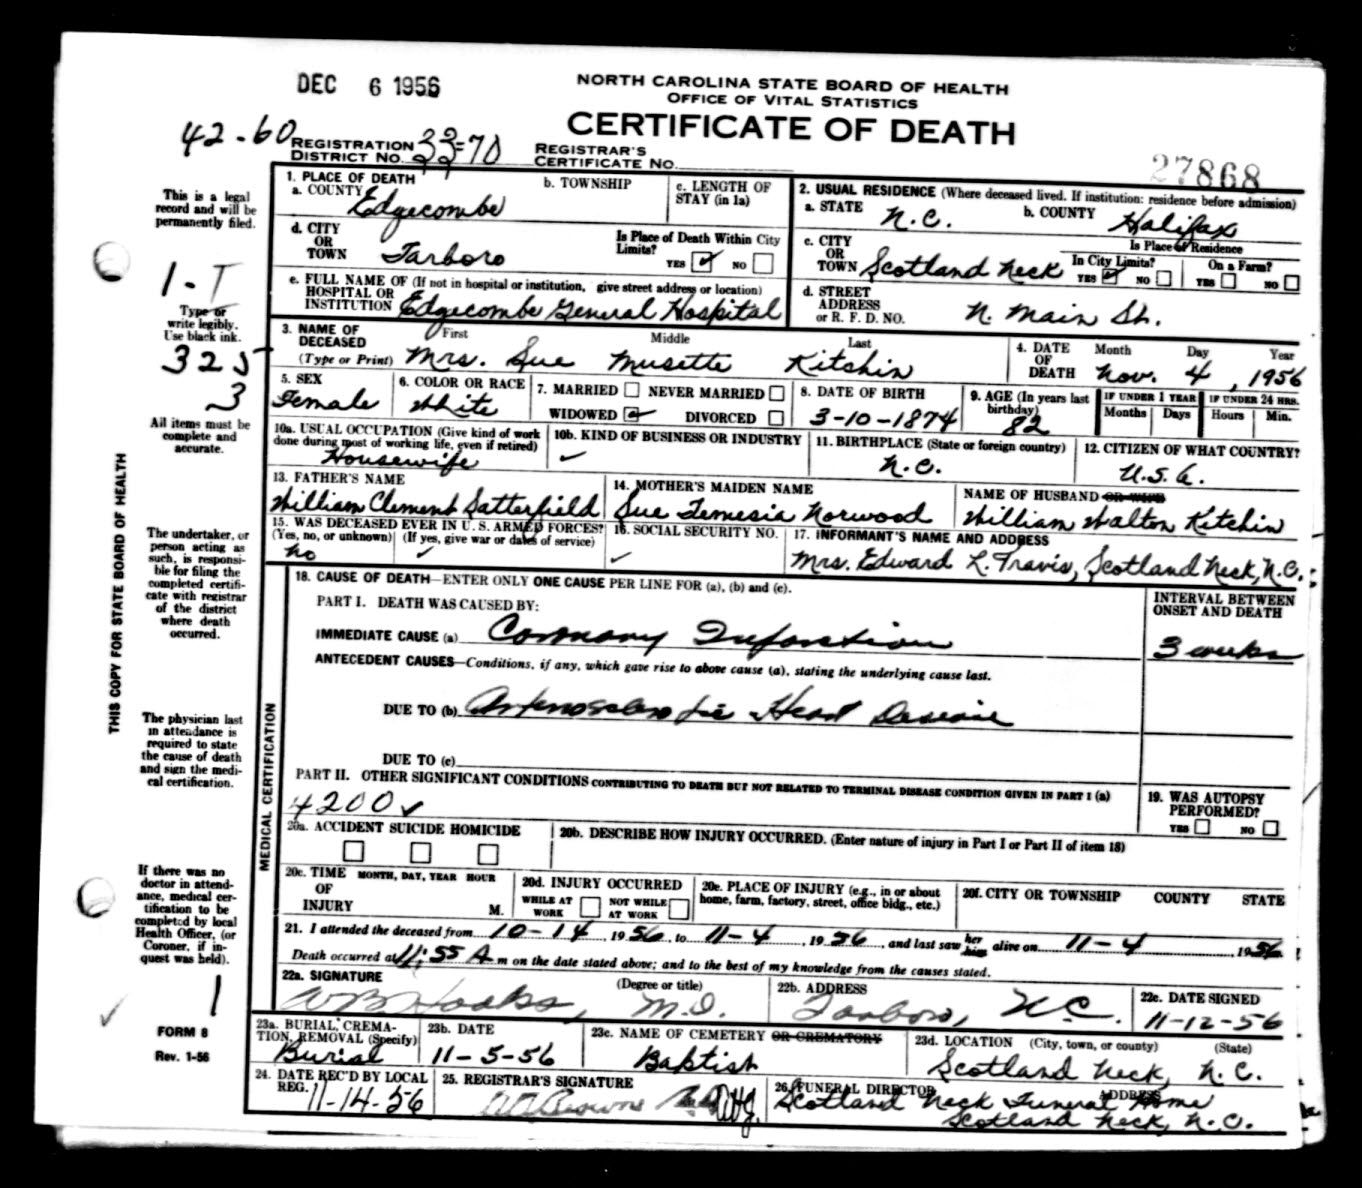 DEC 6 1956
NORTH CAROLINA STATE BOARD OF HEALTH
OFFICE OF VITAL STATISTICS
CERTIFICATE OF DEATH
42-60
REGISTRATION DISTRICT NO. 33-70
REGISTRAR'S CERTIFICATE NO.
27868
This is a legal record and will be permanently filed.
1. PLACE OF DEATH
a. COUNTY Edgecombe
b. TOWNSHIP
c. LENGTH OF STAY (in 1a)
2. USUAL RESIDENCE (Where deceased lived. If institution: residence before admission)
a. STATE N.C.
b. COUNTY Halifax
d. CITY OR TOWN Tarboro
Is Place of Death Within City Limits? YES ✓ NO
c. CITY OR TOWN Scotland Neck
Is Place of Residence
In City Limits? YES ✓ NO
On a Farm? YES NO
1-T
Type or write legibly. Use black ink.
e. FULL NAME OF (If not in hospital or institution, give street address or location)
HOSPITAL OR INSTITUTION Edgecombe General Hospital
d. STREET ADDRESS or R. F. D. NO. N. Main St.
325
3
3. NAME OF DECEASED (Type or Print)
First Middle Last
Mrs. Sue Musette Kitchin
4. DATE OF DEATH Month Day Year
Nov. 4, 1956
5. SEX Female
6. COLOR OR RACE White
7. MARRIED NEVER MARRIED
WIDOWED ✓ DIVORCED
8. DATE OF BIRTH 3-10-1874
9. AGE (In years last birthday) 82
IF UNDER 1 YEAR Months Days
IF UNDER 24 HRS. Hours Min.
All items must be complete and accurate.
10a. USUAL OCCUPATION (Give kind of work done during most of working life, even if retired) Housewife
10b. KIND OF BUSINESS OR INDUSTRY ✓
11. BIRTHPLACE (State or foreign country) N.C.
12. CITIZEN OF WHAT COUNTRY? U.S.A.
13. FATHER'S NAME William Clement Satterfield
14. MOTHER'S MAIDEN NAME Sue Temesia Norwood
NAME OF HUSBAND OR WIFE William Walton Kitchin
15. WAS DECEASED EVER IN U. S. ARMED FORCES?
(Yes, no, or unknown) (If yes, give war or dates of service)
no ✓
16. SOCIAL SECURITY NO. ✓
17. INFORMANT'S NAME AND ADDRESS
Mrs. Edward L. Travis, Scotland Neck, N.C.
THIS COPY FOR STATE BOARD OF HEALTH
The undertaker, or person acting as such, is responsible for filing the completed certificate with registrar of the district where death occurred.
MEDICAL CERTIFICATION
18. CAUSE OF DEATH—ENTER ONLY ONE CAUSE PER LINE FOR (a), (b) and (c).
INTERVAL BETWEEN ONSET AND DEATH
PART I. DEATH WAS CAUSED BY:
IMMEDIATE CAUSE (a) Coronary Infarction
3 weeks
ANTECEDENT CAUSES—Conditions, if any, which gave rise to above cause (a), stating the underlying cause last.
DUE TO (b) Arteriosclerotic Heart Disease
DUE TO (c)
The physician last in attendance is required to state the cause of death and sign the medical certification.
PART II. OTHER SIGNIFICANT CONDITIONS CONTRIBUTING TO DEATH BUT NOT RELATED TO TERMINAL DISEASE CONDITION GIVEN IN PART I (a)
4200 ✓
19. WAS AUTOPSY PERFORMED? YES NO
20a. ACCIDENT SUICIDE HOMICIDE
20b. DESCRIBE HOW INJURY OCCURRED. (Enter nature of injury in Part I or Part II of item 18)
20c. TIME OF INJURY MONTH, DAY, YEAR HOUR M.
20d. INJURY OCCURRED WHILE AT WORK NOT WHILE AT WORK
20e. PLACE OF INJURY (e.g., in or about home, farm, factory, street, office bldg., etc.)
20f. CITY OR TOWNSHIP COUNTY STATE
If there was no doctor in attendance, medical certification to be completed by local Health Officer, (or Coroner, if inquest was held).
21. I attended the deceased from 10-14, 1956, to 11-4, 1956, and last saw her him alive on 11-4 1956.
Death occurred at 11:55 A m on the date stated above; and to the best of my knowledge from the causes stated.
22a. SIGNATURE (Degree or title)
WB Hooks, M.D.
22b. ADDRESS Tarboro, N.C.
22c. DATE SIGNED 11-12-56
✓ 1
FORM 8
Rev. 1-56
23a. BURIAL, CREMATION, REMOVAL (Specify) Burial
23b. DATE 11-5-56
23c. NAME OF CEMETERY OR CREMATORY Baptist
23d. LOCATION (City, town, or county) (State)
Scotland Neck, N.C.
24. DATE REC'D BY LOCAL REG. 11-14-56
25. REGISTRAR'S SIGNATURE
26. FUNERAL DIRECTOR ADDRESS
Scotland Neck Funeral Home
Scotland Neck, N.C.